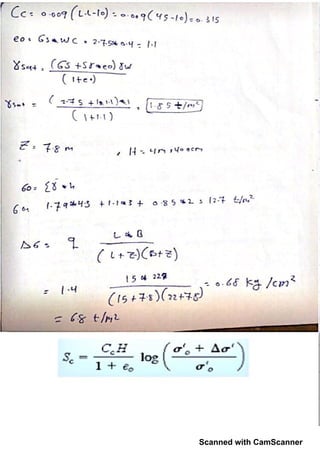 Cc = 0.009 (L.L-10) = 0.009 (45-10) = 0.315
eo = Gs*WC = 2.75*0.4 = 1.1
γsat = (GS + Sr*eo) γw
(1+e०)
γsat = (2.75 + 1*1.1)*1 = 1.85 t/m²
(1+1.1)
Z = 7.8 m , H = 4m = 400cm
б0 = Σγ*h
1.79*4.5 + 1.1*3 + 0.85*2 = 12.7 t/m²
Δб = q L*B
(L+Z)(B+Z)
= 1.4 15*22 = 0.68 kg/cm²
(15+7.8)(22+7.8)
= 6.8 t/m2
Sc = CcH / 1 + eo log (σ'o + Δσ' / σ'o)
Scanned with CamScanner